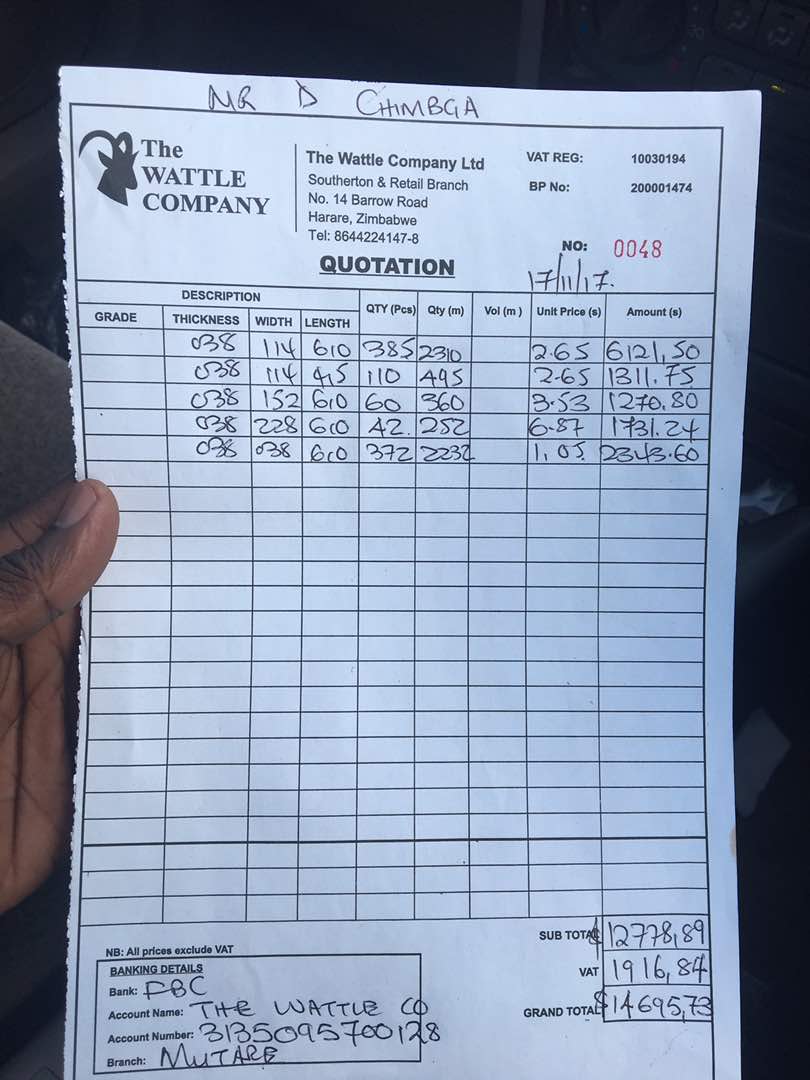 MR D CHIMBGA
The
WATTLE
COMPANY
The Wattle Company Ltd
Southerton & Retail Branch
No. 14 Barrow Road
Harare, Zimbabwe
Tel: 8644224147-8
VAT REG: 10030194
BP No: 200001474
NO: 0048
QUOTATION
17/11/17.
DESCRIPTION
GRADE THICKNESS WIDTH LENGTH QTY (Pcs) Qty (m) Vol (m ) Unit Price (s) Amount (s)
038 114 6,0 385 2310 2.65 6121,50
038 114 4,5 110 495 2.65 1311.75
038 152 6,0 60 360 3.53 1270.80
038 228 6,0 42. 252 6.87 1731.24
038 038 6,0 372 2232 1,05 2343.60
NB: All prices exclude VAT
SUB TOTAL $12778,89
VAT 1916,84
GRAND TOTAL $14695,73
BANKING DETAILS
Bank: FBC
Account Name: THE WATTLE CO
Account Number: 3135095700128
Branch: MUTARE